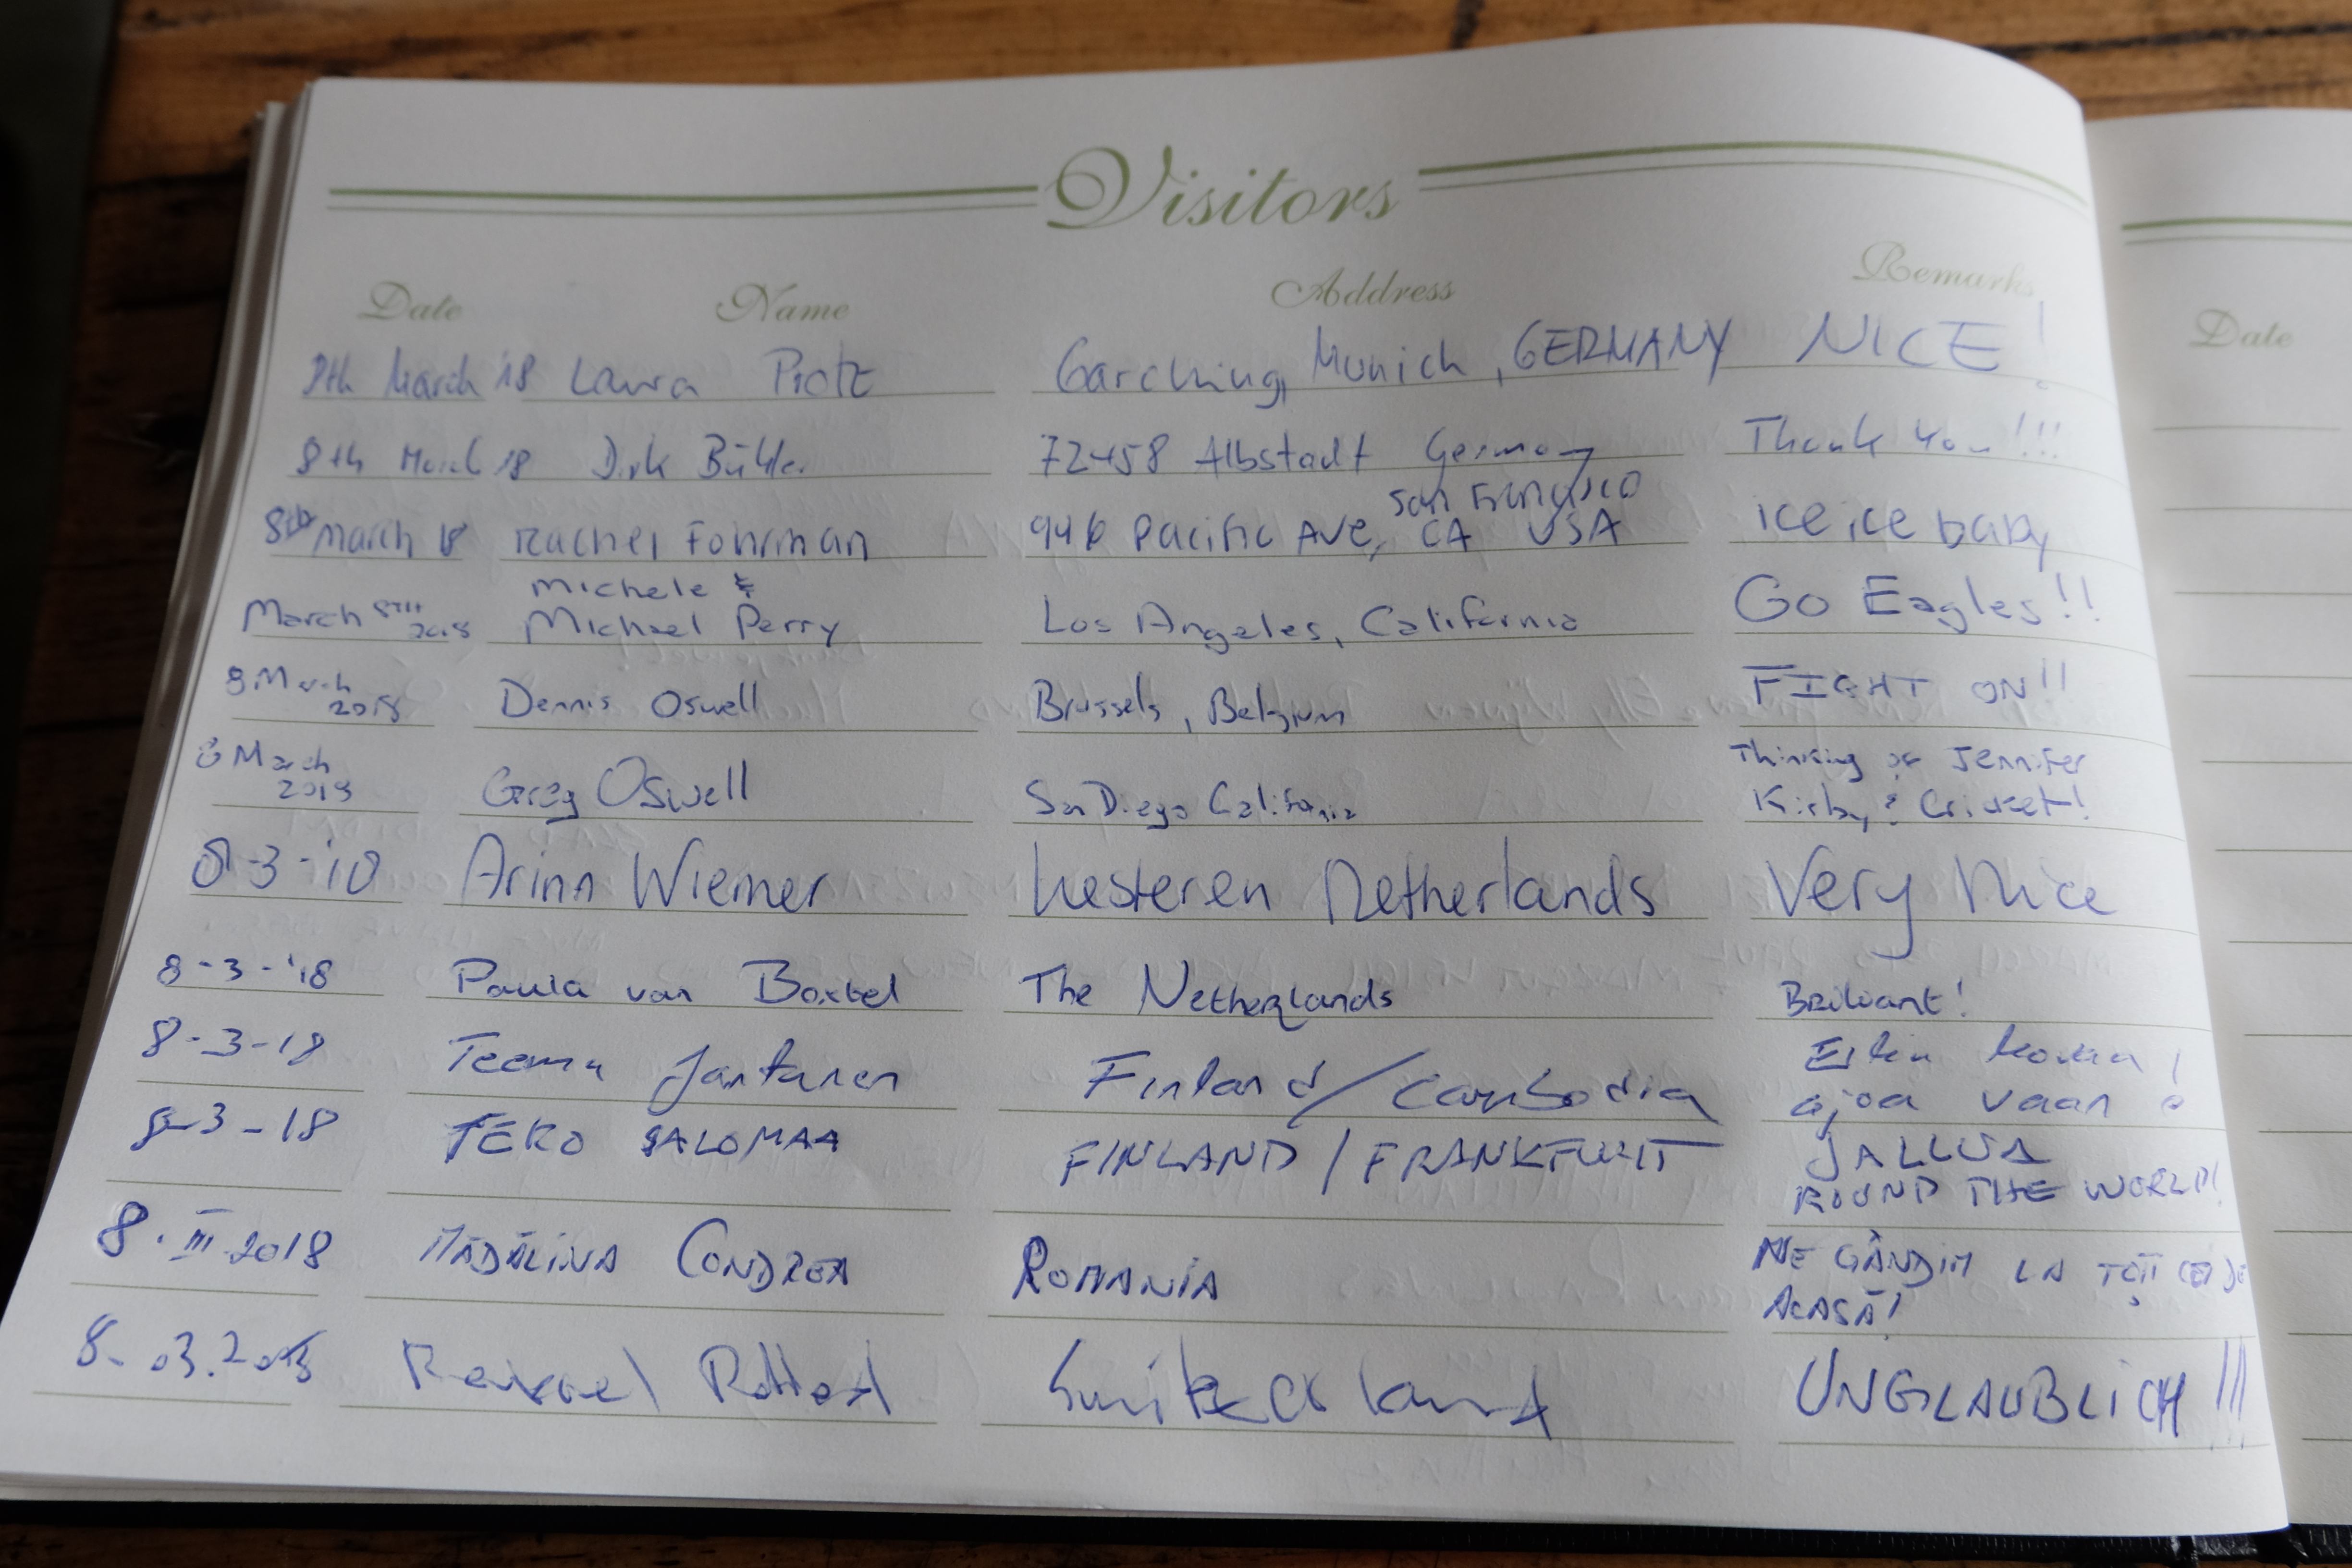 Visitors
Date Name Address Remarks
8th March '18 Laura Garching, Munich, GERMANY NICE!
8th March 18 Dirk Bühler 72458 Albstadt Germany Thank you!!!
8th March 18 Rachel Fohrman 946 Pacific AVE, San Francisco CA USA ice ice baby
March 8TH 2018 Michele & Michael Perry Los Angeles, California Go Eagles!!
8 March 2018 Dennis Oswell Brussels, Belgium FIGHT ON!!
8 March 2018 Greg Oswell San Diego California Thinking of Jennifer
Kirby & Cricket!
8-3-'18 Arinn Wiemer Kesteren Netherlands Very Nice
8-3-'18 Paula van Boxtel The Netherlands Brilliant!
8-3-18 Teemu Jantunen Finland/Cambodia
ajoa vaan
8-3-18 TERO SALOMAA FINLAND / FRANKFURT JALLUA
ROUND THE WORLD!
8.III.2018 MĂDĂLINA CONDREA ROMANIA NE GÂNDIM LA TOȚI CEI DE
ACASĂ!
8.03.2018 Switzerland UNGLAUBLICH!!!
Date